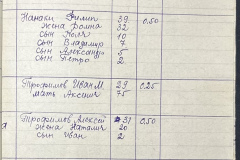 Панаки Филип 39 0,50
жена Домна 32
сын Коля 10
сын Владимир 7
сын Александр 5
сын Петро 2
Трофимов Иван М. 29 0,25
мать Аксения 75
Трофимов Алексей 31 0,50
жена Наталия 20
сын Иван 2